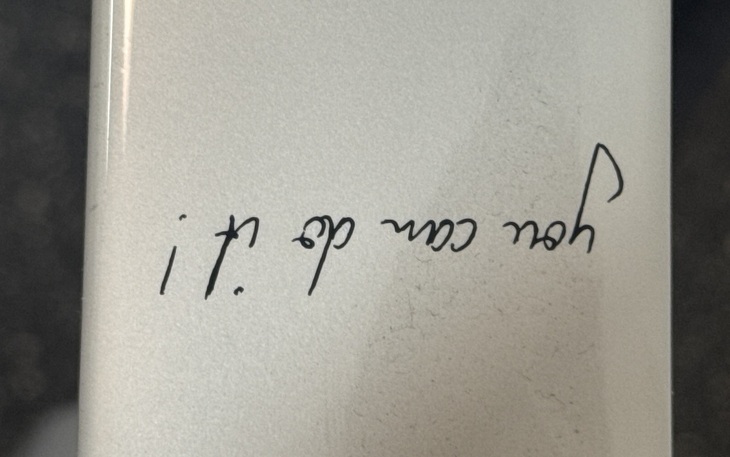 you can do it!